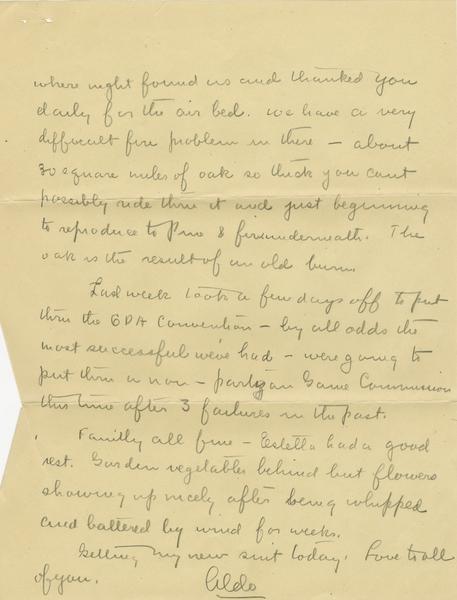 where night found us and thanked you
daily for the air bed. We have a very
difficult fire problem in there – about
30 square miles of oak so thick you cant
possibly ride thru it and just beginning
to reproduce to Pine & fir underneath. The
oak is the result of an old burn.
Last week took a few days off to put
thru the GPA Convention – by all odds the
most successful we've had – were going to
put thru a non-partizan Game Commission
this time after 3 failures in the past.
Family all fine – Estella had a good
rest. Garden vegetables behind but flowers
showing up nicely after being whipped
and battered by wind for weeks.
Getting my new suit today. Love to all
of you. Aldo